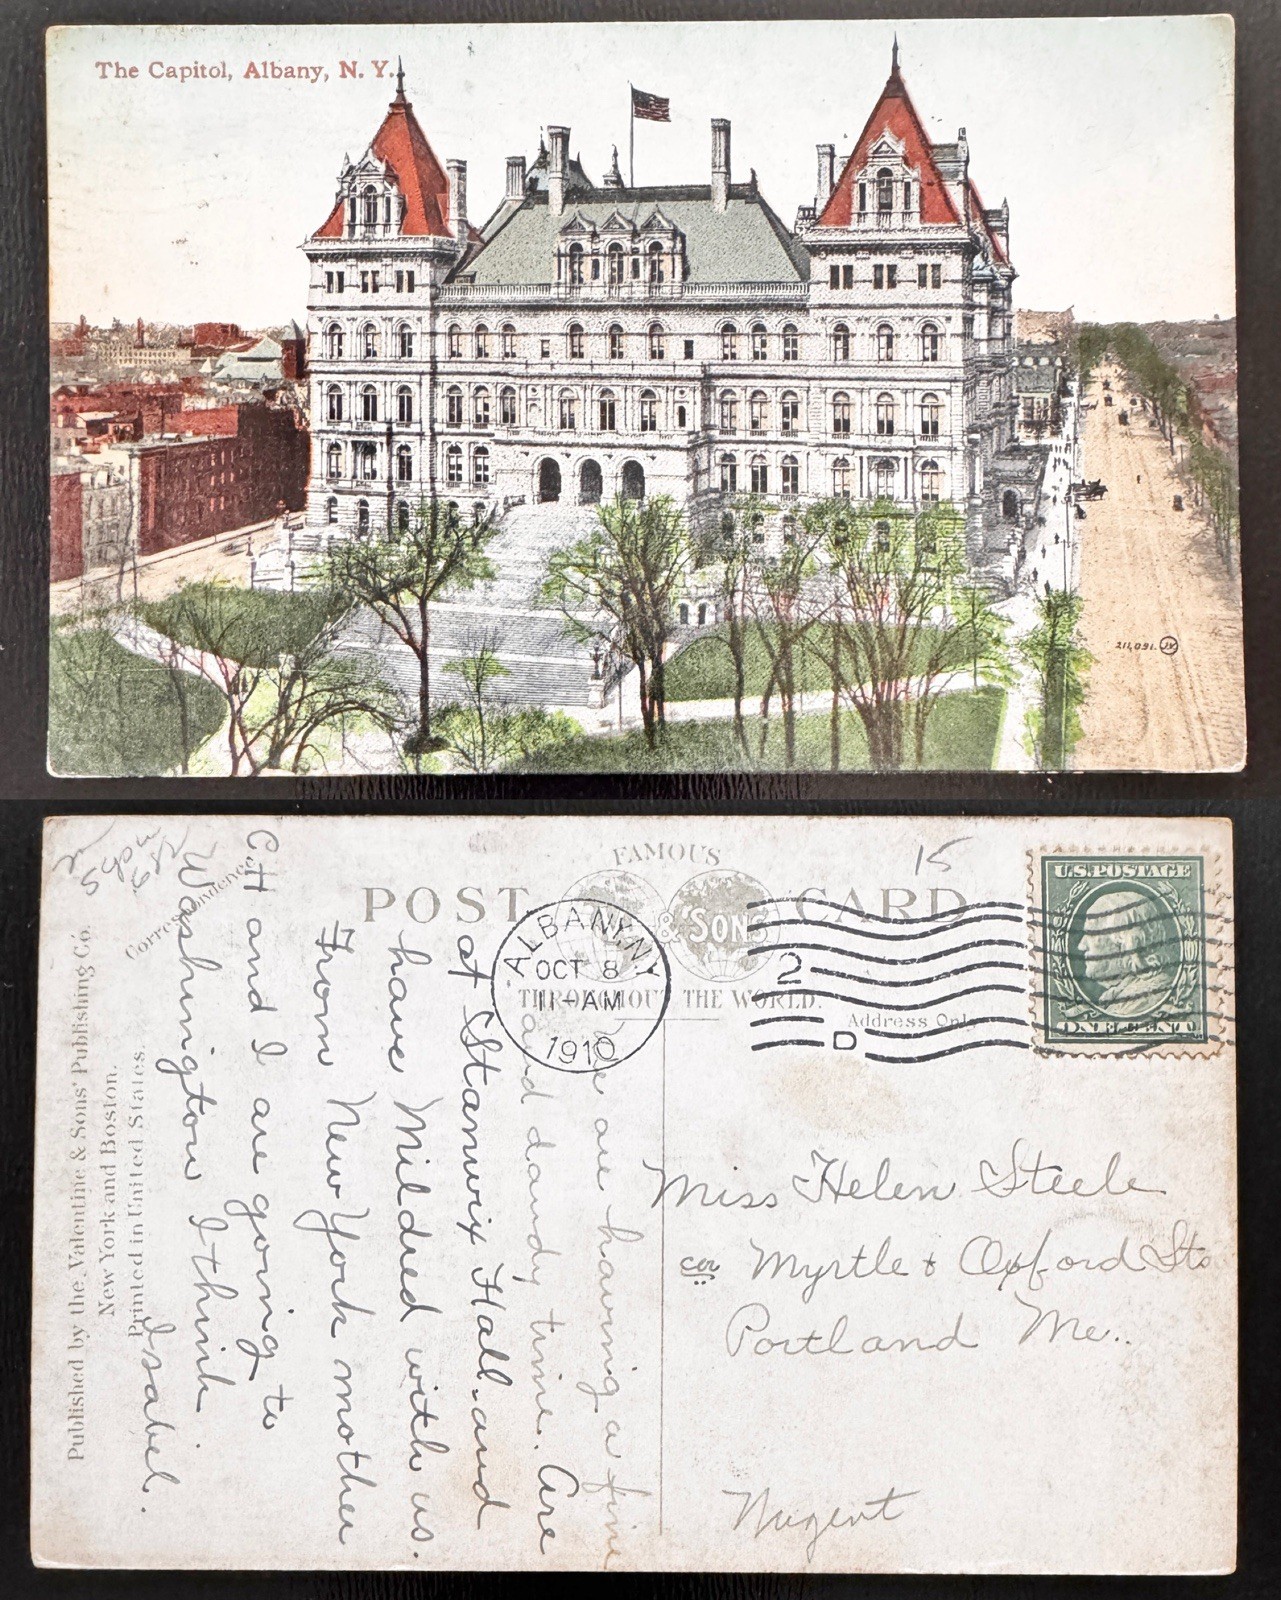 The Capitol, Albany, N. Y.
211,091. JV
POST CARD
FAMOUS
& SONS
THROUGHOUT THE WORLD.
Address Only
Correspondence
ALBANY, N.Y.
OCT 8
11-AM
1910
2
D
U.S. POSTAGE
ONE CENT
15
We are having a fine
and dandy time. Are
at Stanwix Hall. and
have Mildred with us.
From New York mother
and I are going to
Washington I think.
Isabel.
Miss Helen Steele
cor Myrtle & Oxford Sts
Portland Me..
Nugent
Published by the Valentine & Sons' Publishing Co.
New York and Boston.
Printed in United States.